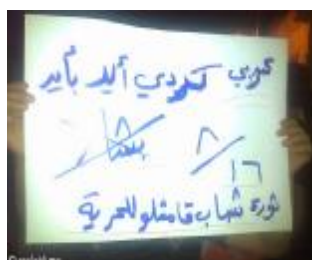 عربي كردي أيد بأيد
بشار
١٦ / ٨
ثورة شباب قامشلو للحرية